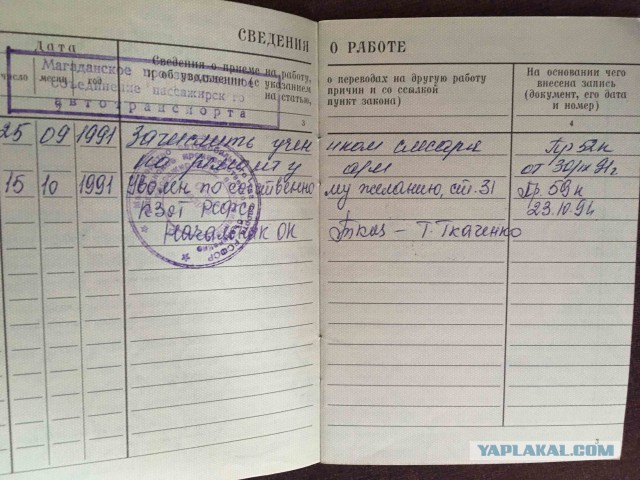 СВЕДЕНИЯ О РАБОТЕ
Дата
число месяц год
Сведения о приеме на работу,
(с указанием
на статью,
о переводах на другую работу
причин и со ссылкой
пункт закона)
На основании чего
внесена запись
(документ, его дата
и номер)
3
4
Магаданское
объединение пассажирского
автотранспорта
25 09 1991 Зачислить учеником слесаря Пр 52к
по ремонту а/м
15 10 1991 Уволен по собственному желанию, ст. 31 Пр. 59к
КЗоТ РСФСР 23.10.91
Начальник ОК Т. Ткаченко
3
YAPLAKAL.COM